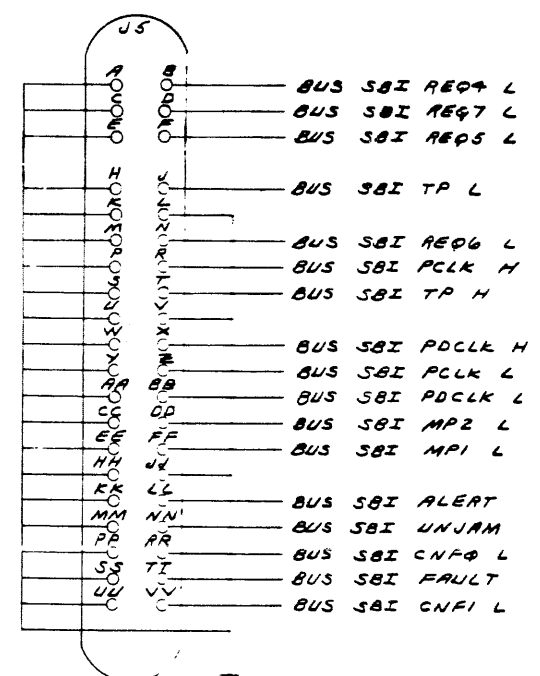 J5
A B BUS SBI REQ4 L
C D BUS SBI REQ7 L
E F BUS SBI REQ5 L
H J BUS SBI TP L
K L
M N BUS SBI REQ6 L
P R BUS SBI PCLK H
S T BUS SBI TP H
U V
W X BUS SBI PDCLK H
Y Z BUS SBI PCLK L
AA BB BUS SBI PDCLK L
CC DD BUS SBI MP2 L
EE FF BUS SBI MP1 L
HH JJ
KK LL BUS SBI ALERT
MM NN BUS SBI UNJAM
PP RR BUS SBI CNF0 L
SS TT BUS SBI FAULT
UU VV BUS SBI CNF1 L